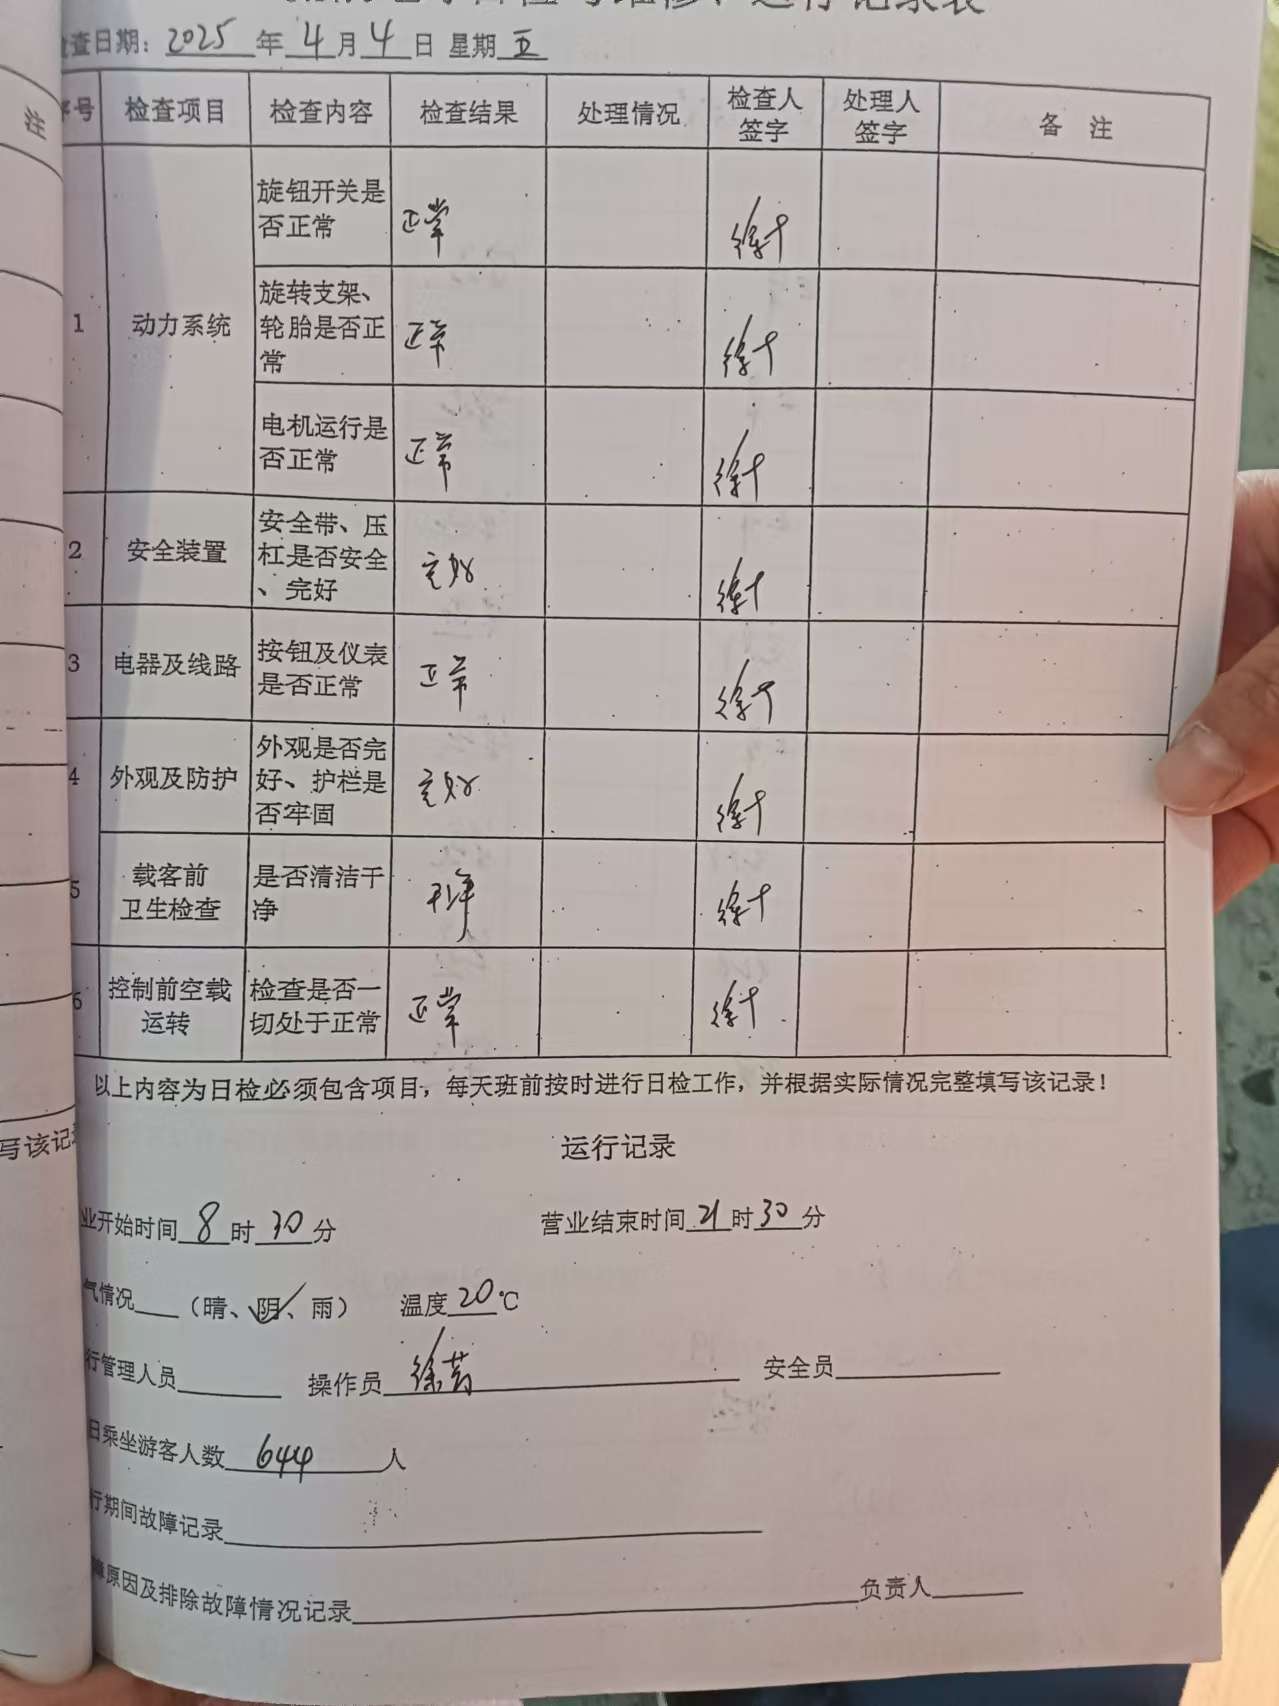 日检与维修、运行记录表
检查日期：2025年4月4日 星期五
序号 检查项目 检查内容 检查结果 处理情况 检查人签字 处理人签字 备 注
1 动力系统 旋钮开关是否正常 正常
旋转支架、轮胎是否正常 正常
电机运行是否正常 正常
2 安全装置 安全带、压杠是否安全、完好 完好
3 电器及线路 按钮及仪表是否正常 正常
4 外观及防护 外观是否完好、护栏是否牢固 完好
5 载客前卫生检查 是否清洁干净 干净
6 控制前空载运转 检查是否一切处于正常 正常
以上内容为日检必须包含项目，每天班前按时进行日检工作，并根据实际情况完整填写该记录！
运行记录
业开始时间8时30分 营业结束时间21时30分
气情况（晴、阴、雨） 温度20℃
行管理人员 操作员 徐 安全员
日乘坐游客人数644人
行期间故障记录
障原因及排除故障情况记录 负责人
注
写该记